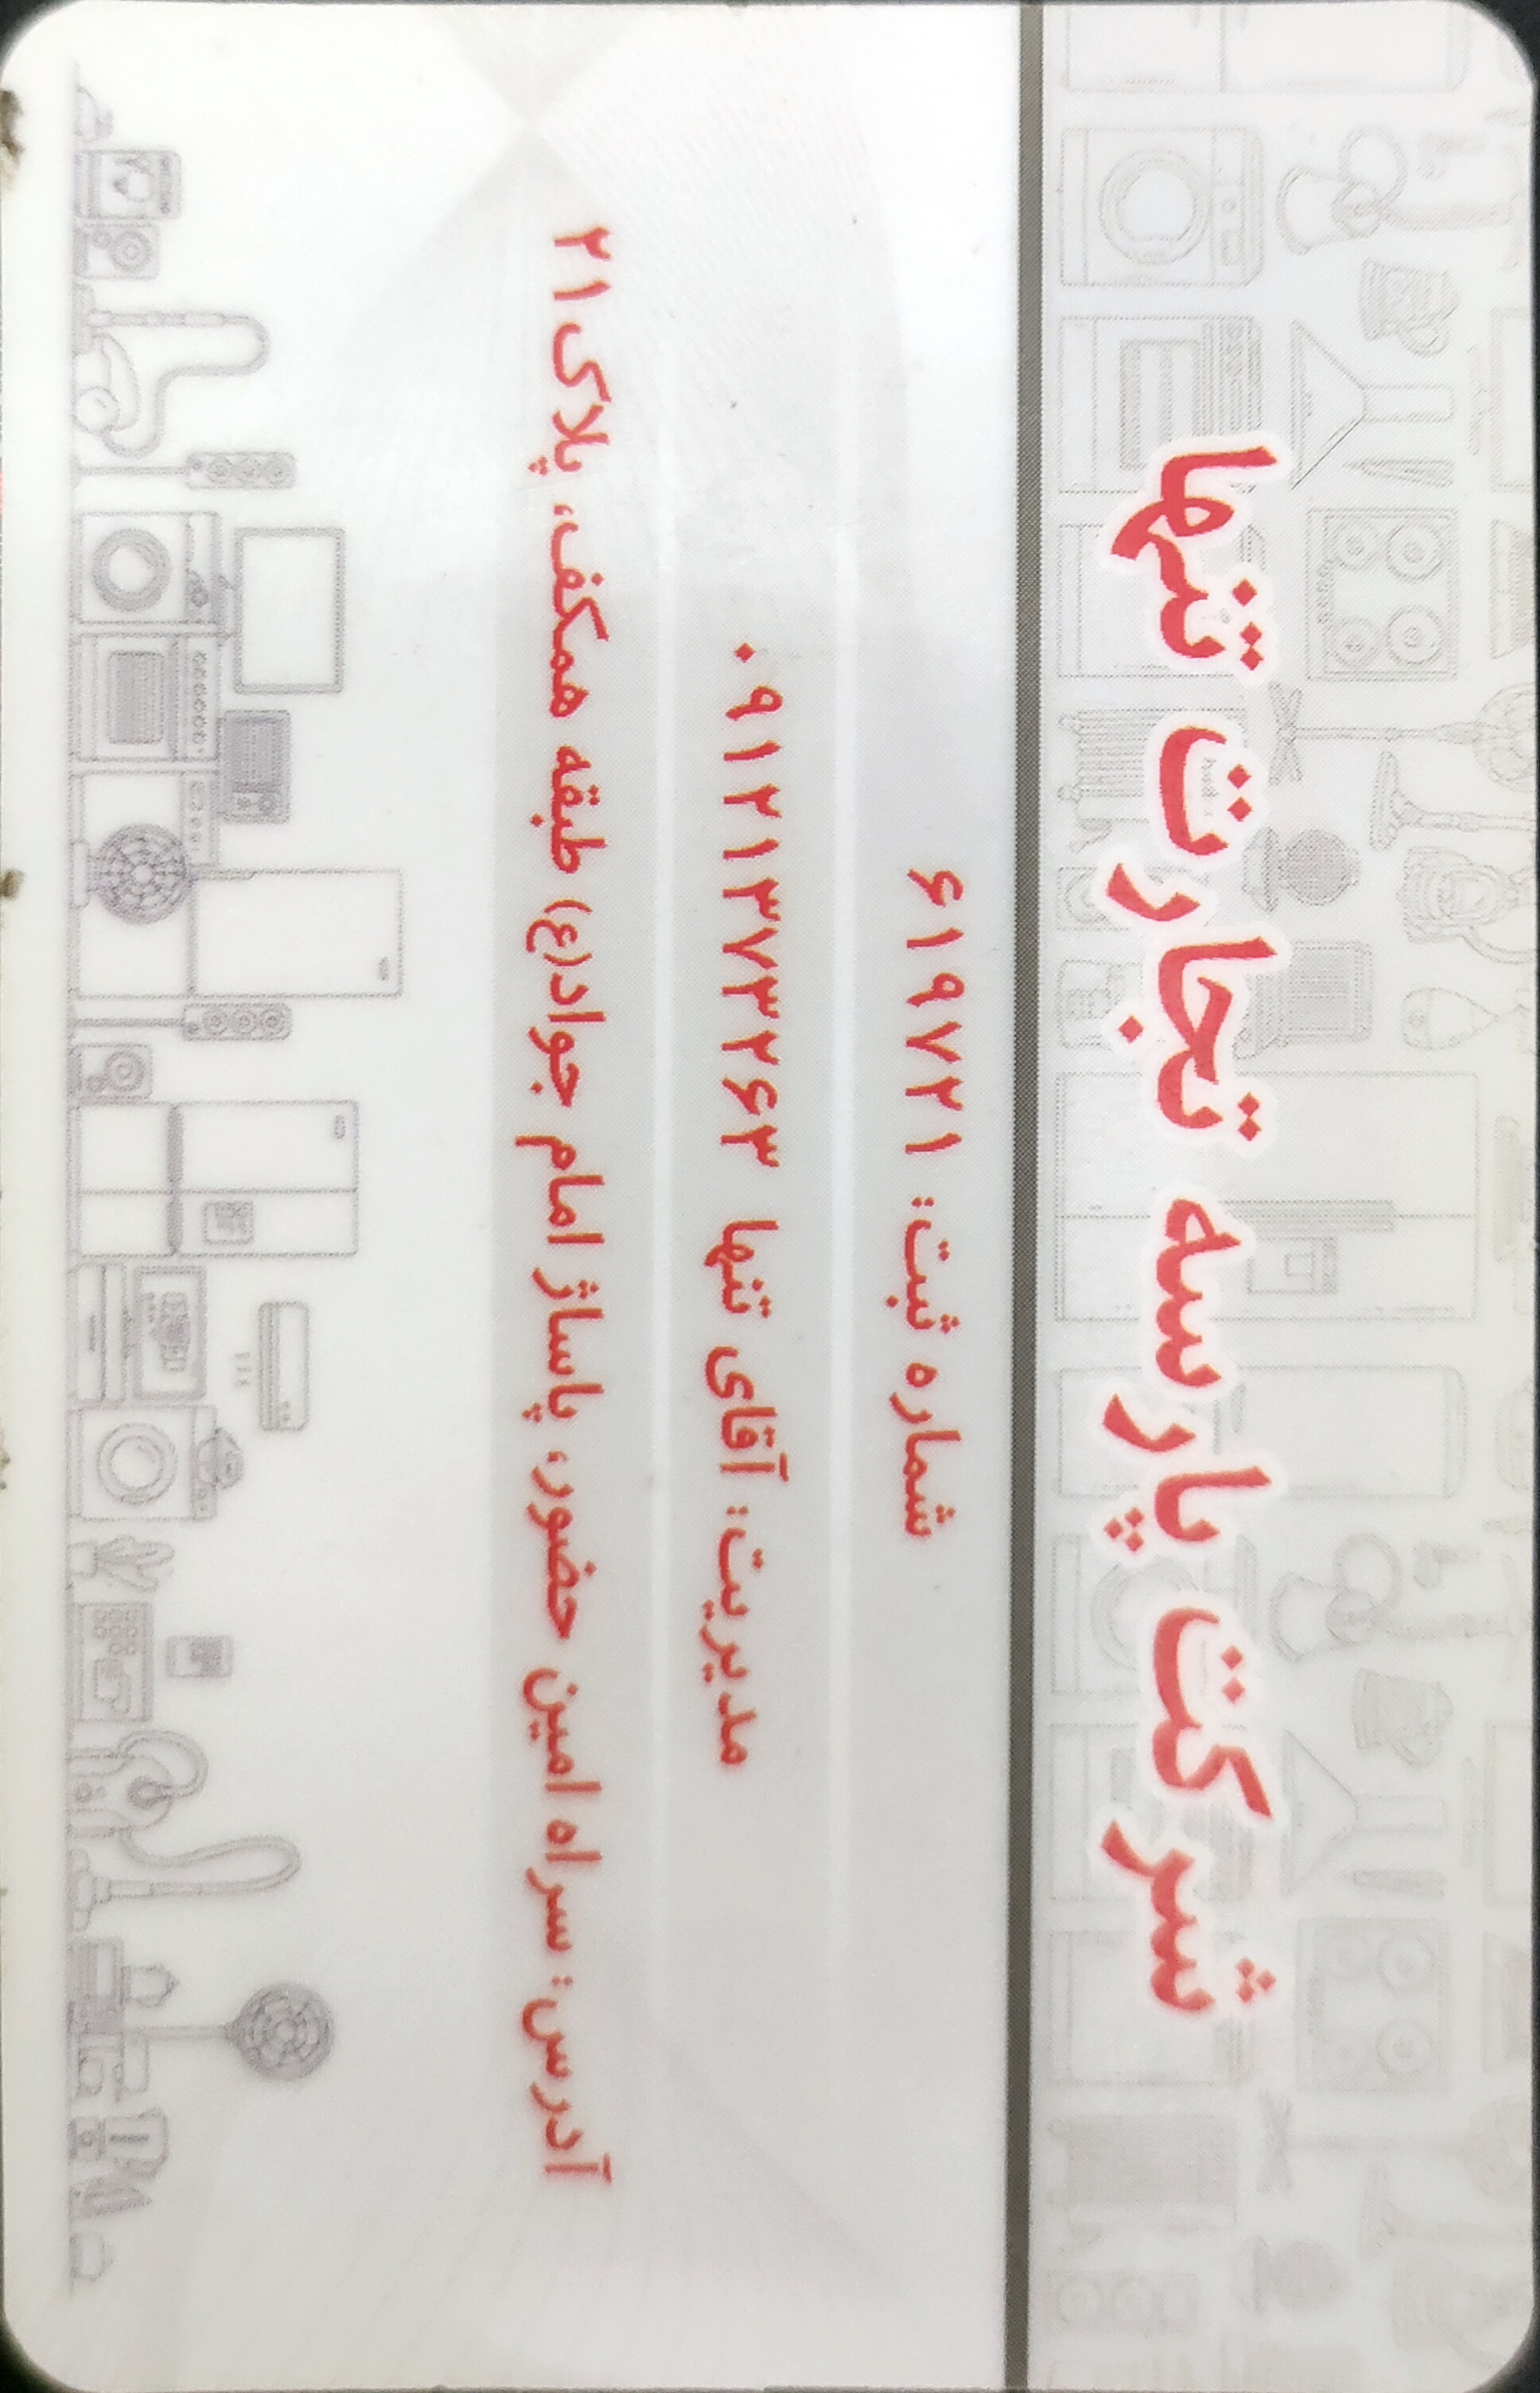 شرکت پارسه تجارت تنها
شماره ثبت: ۶۱۹۷۲۱
مدیریت: آقای تنها ۰۹۱۲۱۳۷۳۲۶۳
آدرس: سراه امین حضور، پاساژ امام جواد(ع) طبقه همکف، پلاک ۲۱